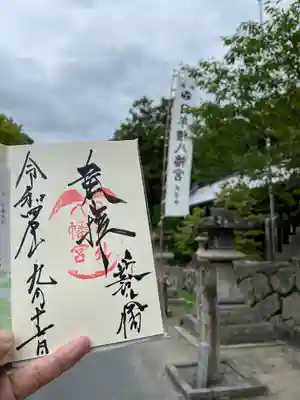 日牟禮八幡宮
奉拝
八幡宮
令和四年九月十一日